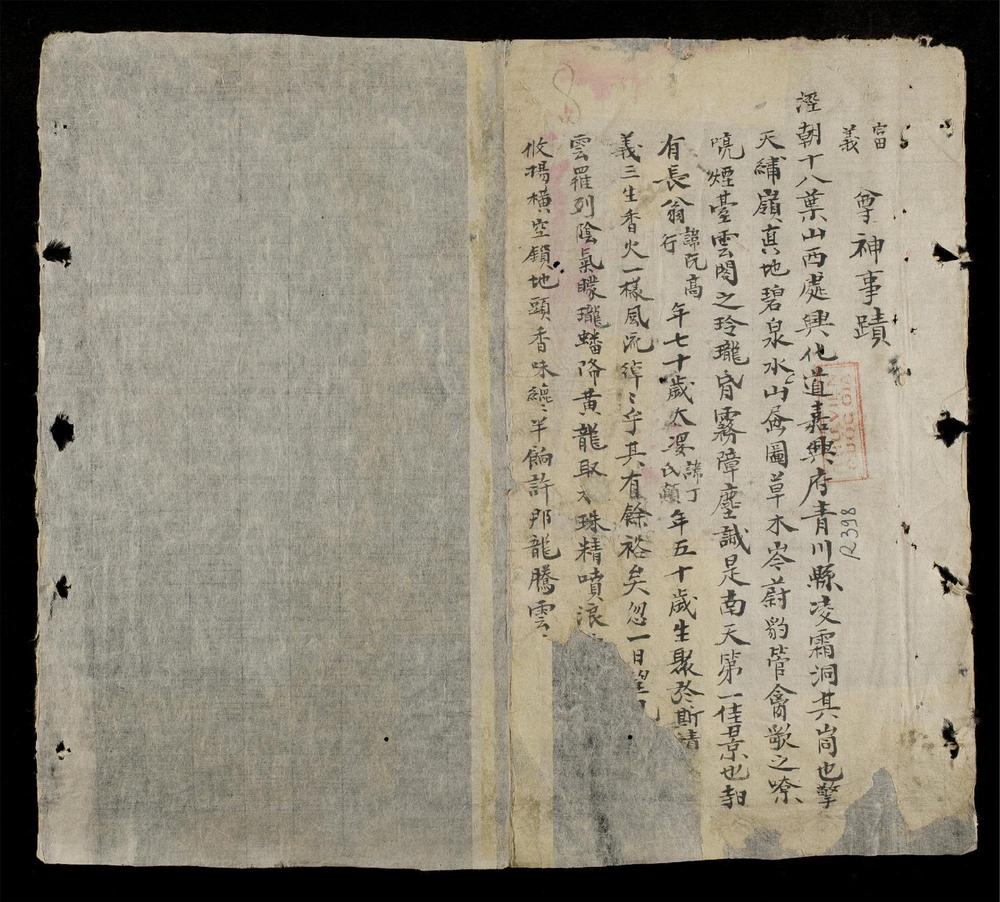 富
義
尊神事蹟
涇朝十八葉山西處興化道嘉興府青川縣凌霜洞其峝也擎
天繡嶺真地碧泉水山屏圖草木岑蔚豹管禽獸之嘹
喨煙臺雲閣之玲瓏昏霧障塵誠是南天第一佳景也
有長翁行諱阮高年七十歲太婆諱丁氏年五十歲生聚於斯情
義三生香火一樣風流綽〻乎其有餘裕矣忽一日望見
雲羅列陰氣矇瓏蟠降黃龍取珠精噴浪
攸揚橫空鎖地頭香味縱〻半餉許那龍騰雲
R398